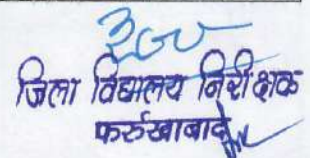 जिला विद्यालय निरीक्षक
फर्रुखाबाद